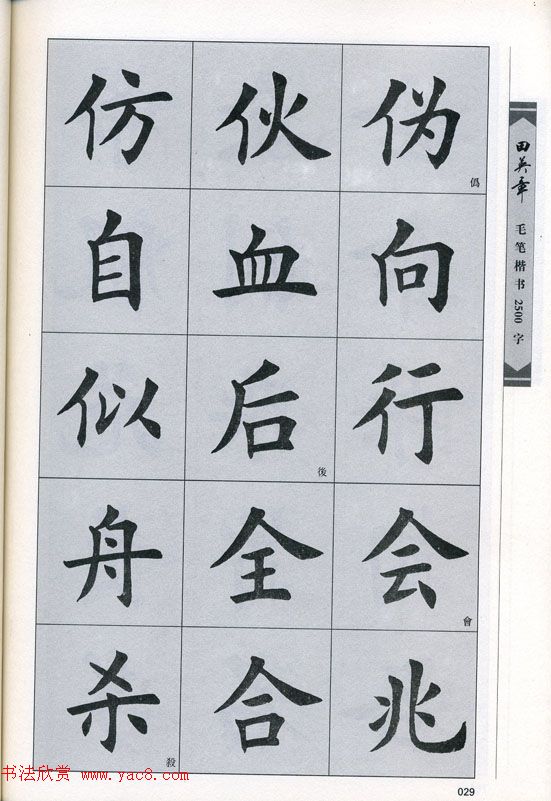 仿伙伪
僞
自血向
似后行
後
舟全会
會
杀合兆
殺
田英章
毛笔楷书2500字
029
书法欣赏 www.yac8.com